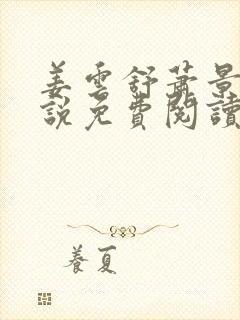 姜雲舒蕭景
說免費閱讀
養夏